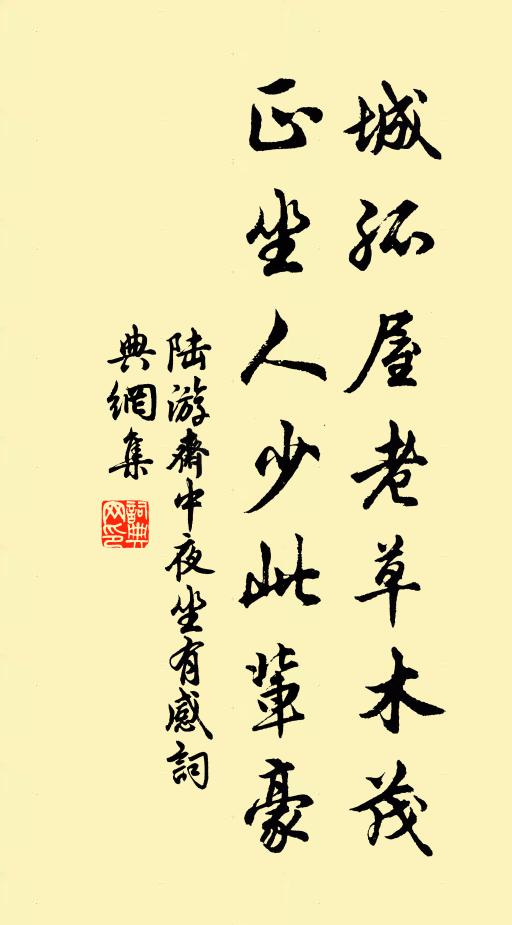 城孤屋老草木茂
正坐人少此輩豪
陸游齋中夜坐有感詞
典網集
詞典
网印